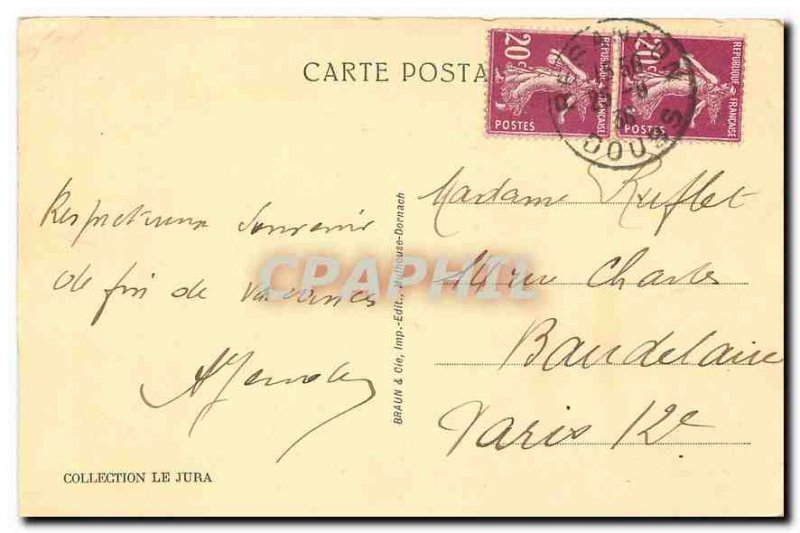 CARTE POSTA
20c
REPUBLIQUE FRANCAISE
POSTES
20c
REPUBLIQUE FRANÇAISE
POSTES
DOUBS
Respectueux Souvenir
de fin de vacances
BRAUN & Cie, Imp.-Edit., Mulhouse-Dornach
Madame Ruflet
rue Charles
Baudelaire
Paris 12e
CPARHIL
COLLECTION LE JURA